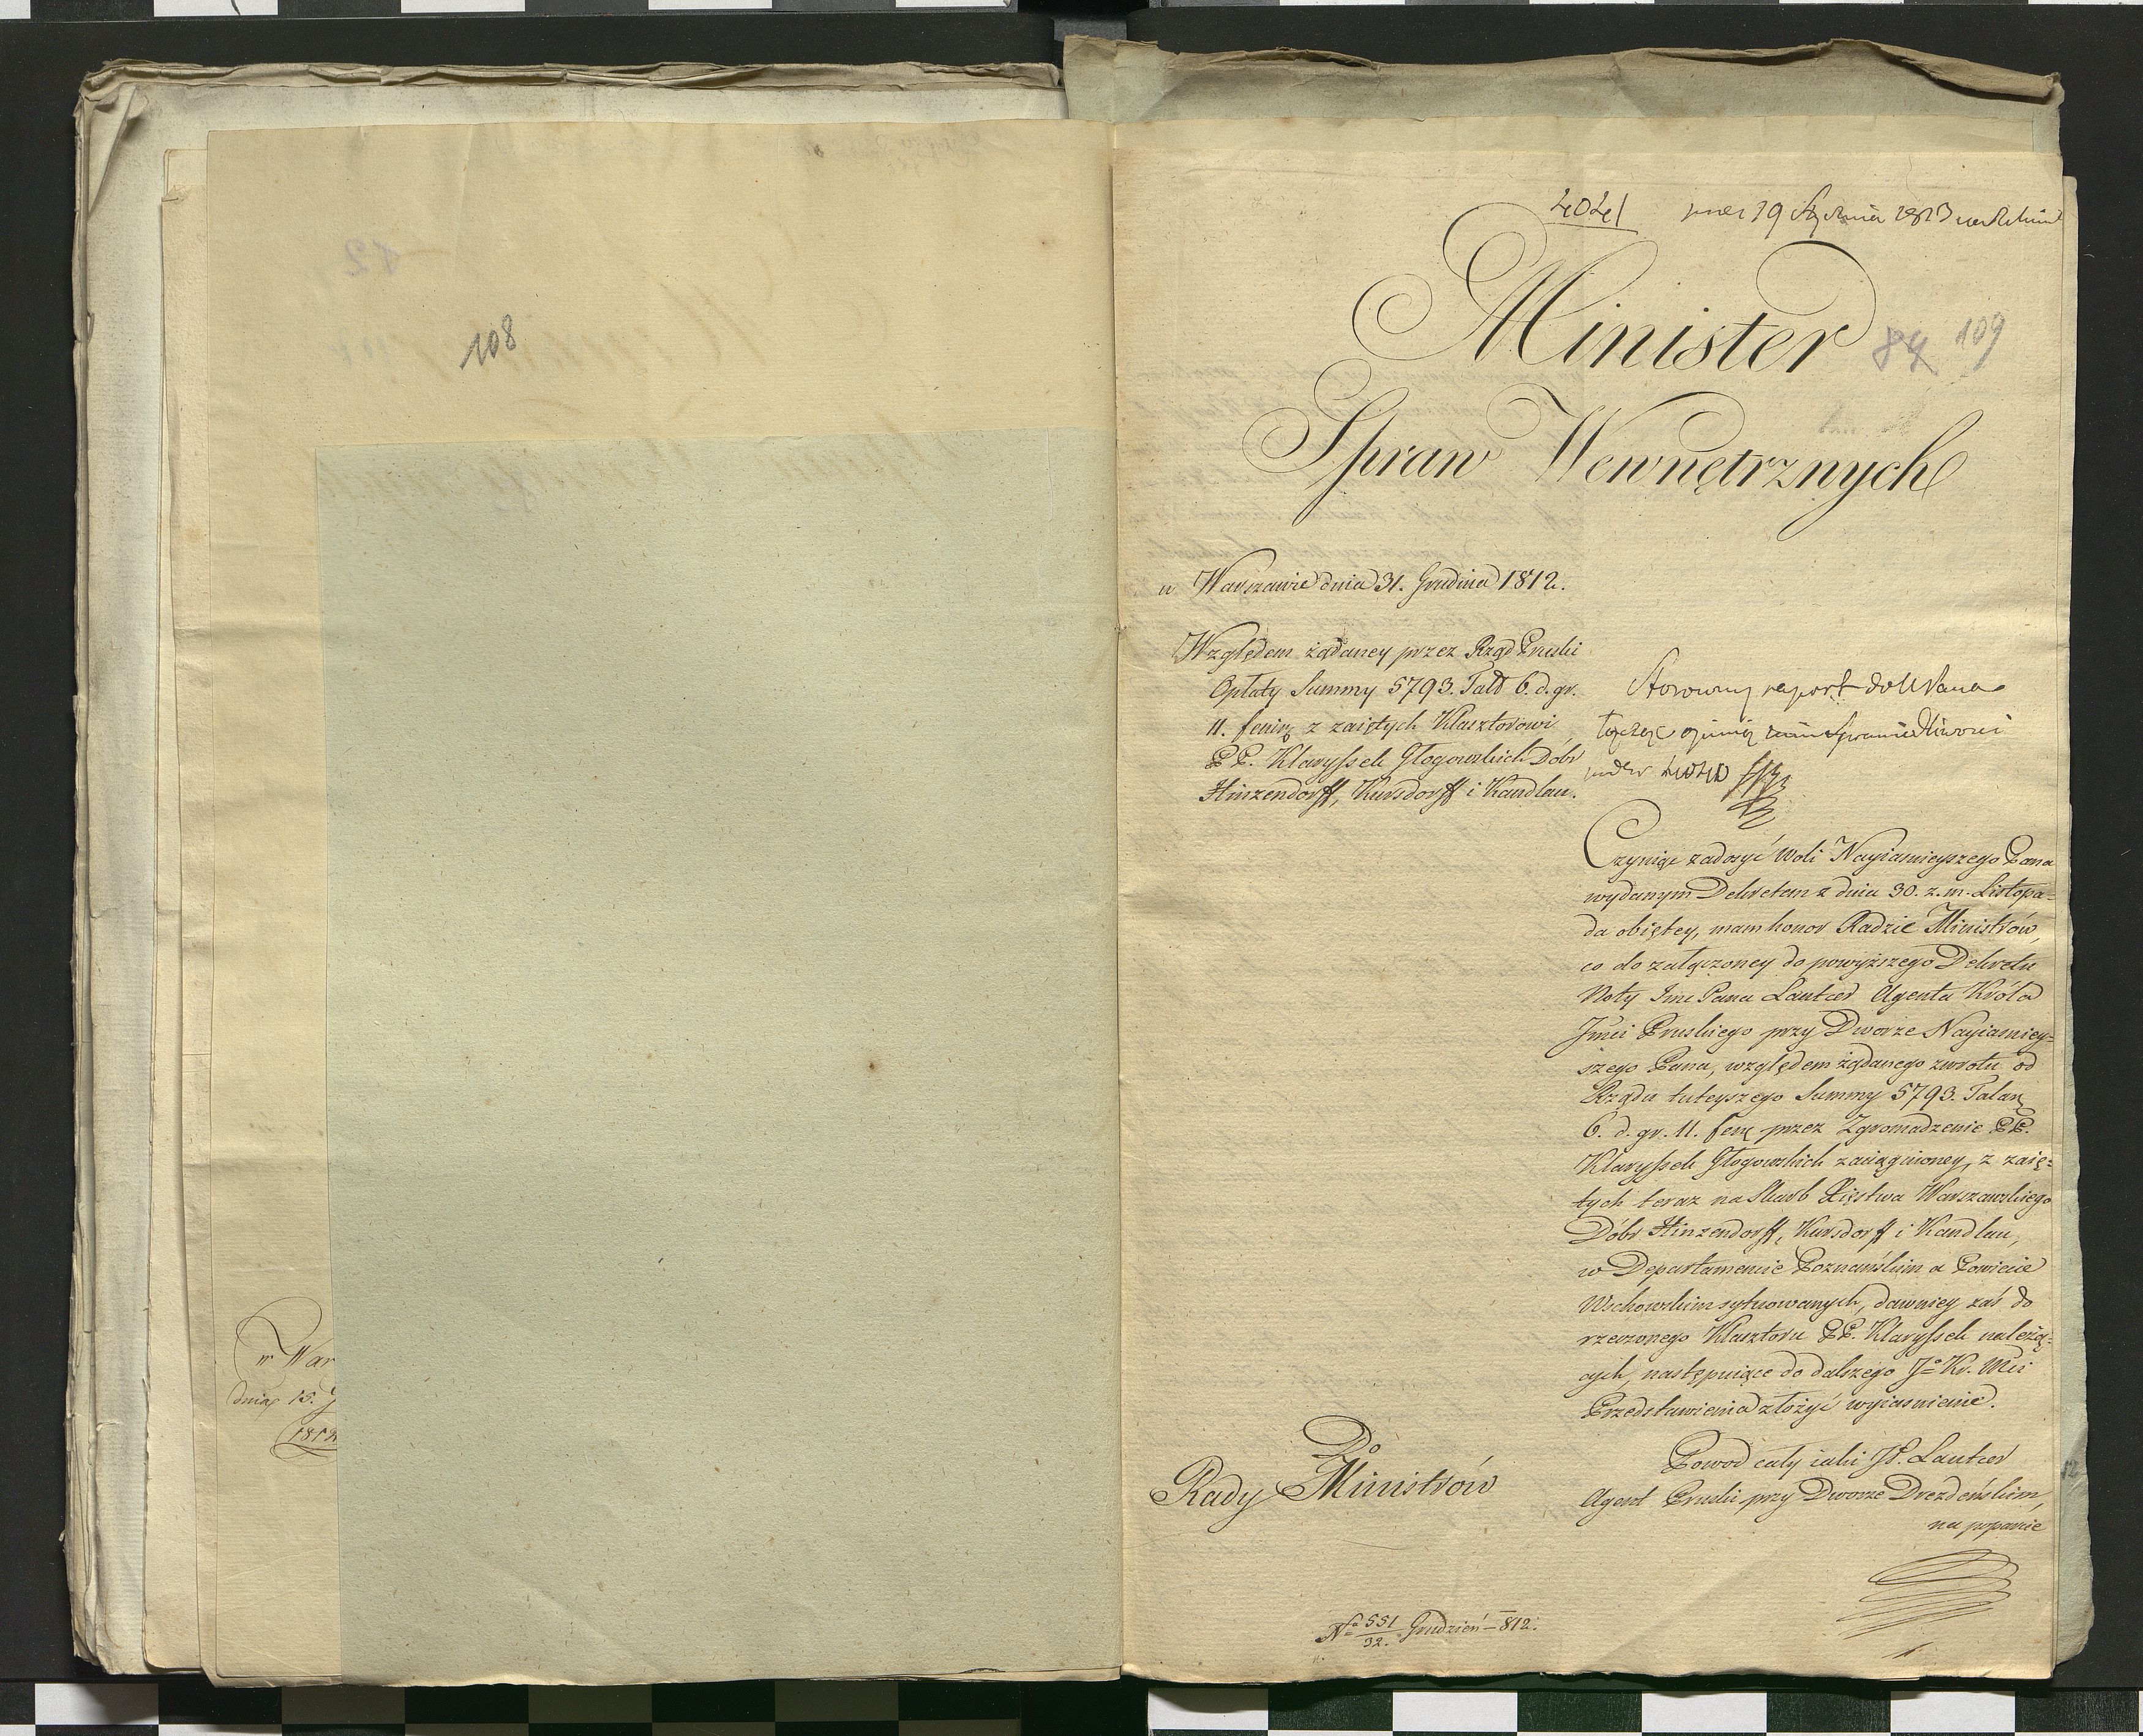 108
w War
dnia 15. G
1812
4041
19 Stycznia 1813
Minister
84 109
Spraw Wewnętrznych
w Warszawie dnia 31. Grudnia 1812.
Względem żądaney przez Rząd Pruski
Opłaty Summy 5793. Tal. 6. d. gr.
11. fenig z zaiętych Klasztorowi
PP. Klaryssek Głogowskich Dóbr
Hinzendorff, Kursdorff i Kandlau.
Stosowny raport do N Pana
łącząc opinię Sprawiedliwości
4040
Czyniąc zadosyć woli Nayiasnieyszego Pana
wydanym Dekretem z dnia 30. z. m. Listopa-
da obiętey, mam honor Radzie Ministrów,
co do załączoney do powyższego Dekretu
Noty Jmc Pana Lautier Agenta Króla
Jmci Pruskiego przy Dworze Nayiasniey-
szego Pana, względem żądanego zwrotu od
Rządu tuteyszego Summy 5793. Talar
6. d. gr. 11. fen przez Zgromadzenie PP.
Klaryssek Głogowskich zaciągnioney, z zaię-
tych teraz na Skarb Xięstwa Warszawskiego
Dóbr Hinzendorff, Kursdorff i Kandlau,
w Departamencie Poznańskim a Powiecie
Wschowskim sytuowanych, dawniey zaś do
rzeczonego Klasztoru PP. Klaryssek należą-
cych, następuiące do dalszego Jo Kr. Mci
Przedstawienia złożyć wyiasnienie.
Powod cały iaki JP. Lautier
Agent Pruski przy Dworze Drezdeńskim,
na poparcie
Do
Rady Ministrów
No 551/32. Grudzień – 812.